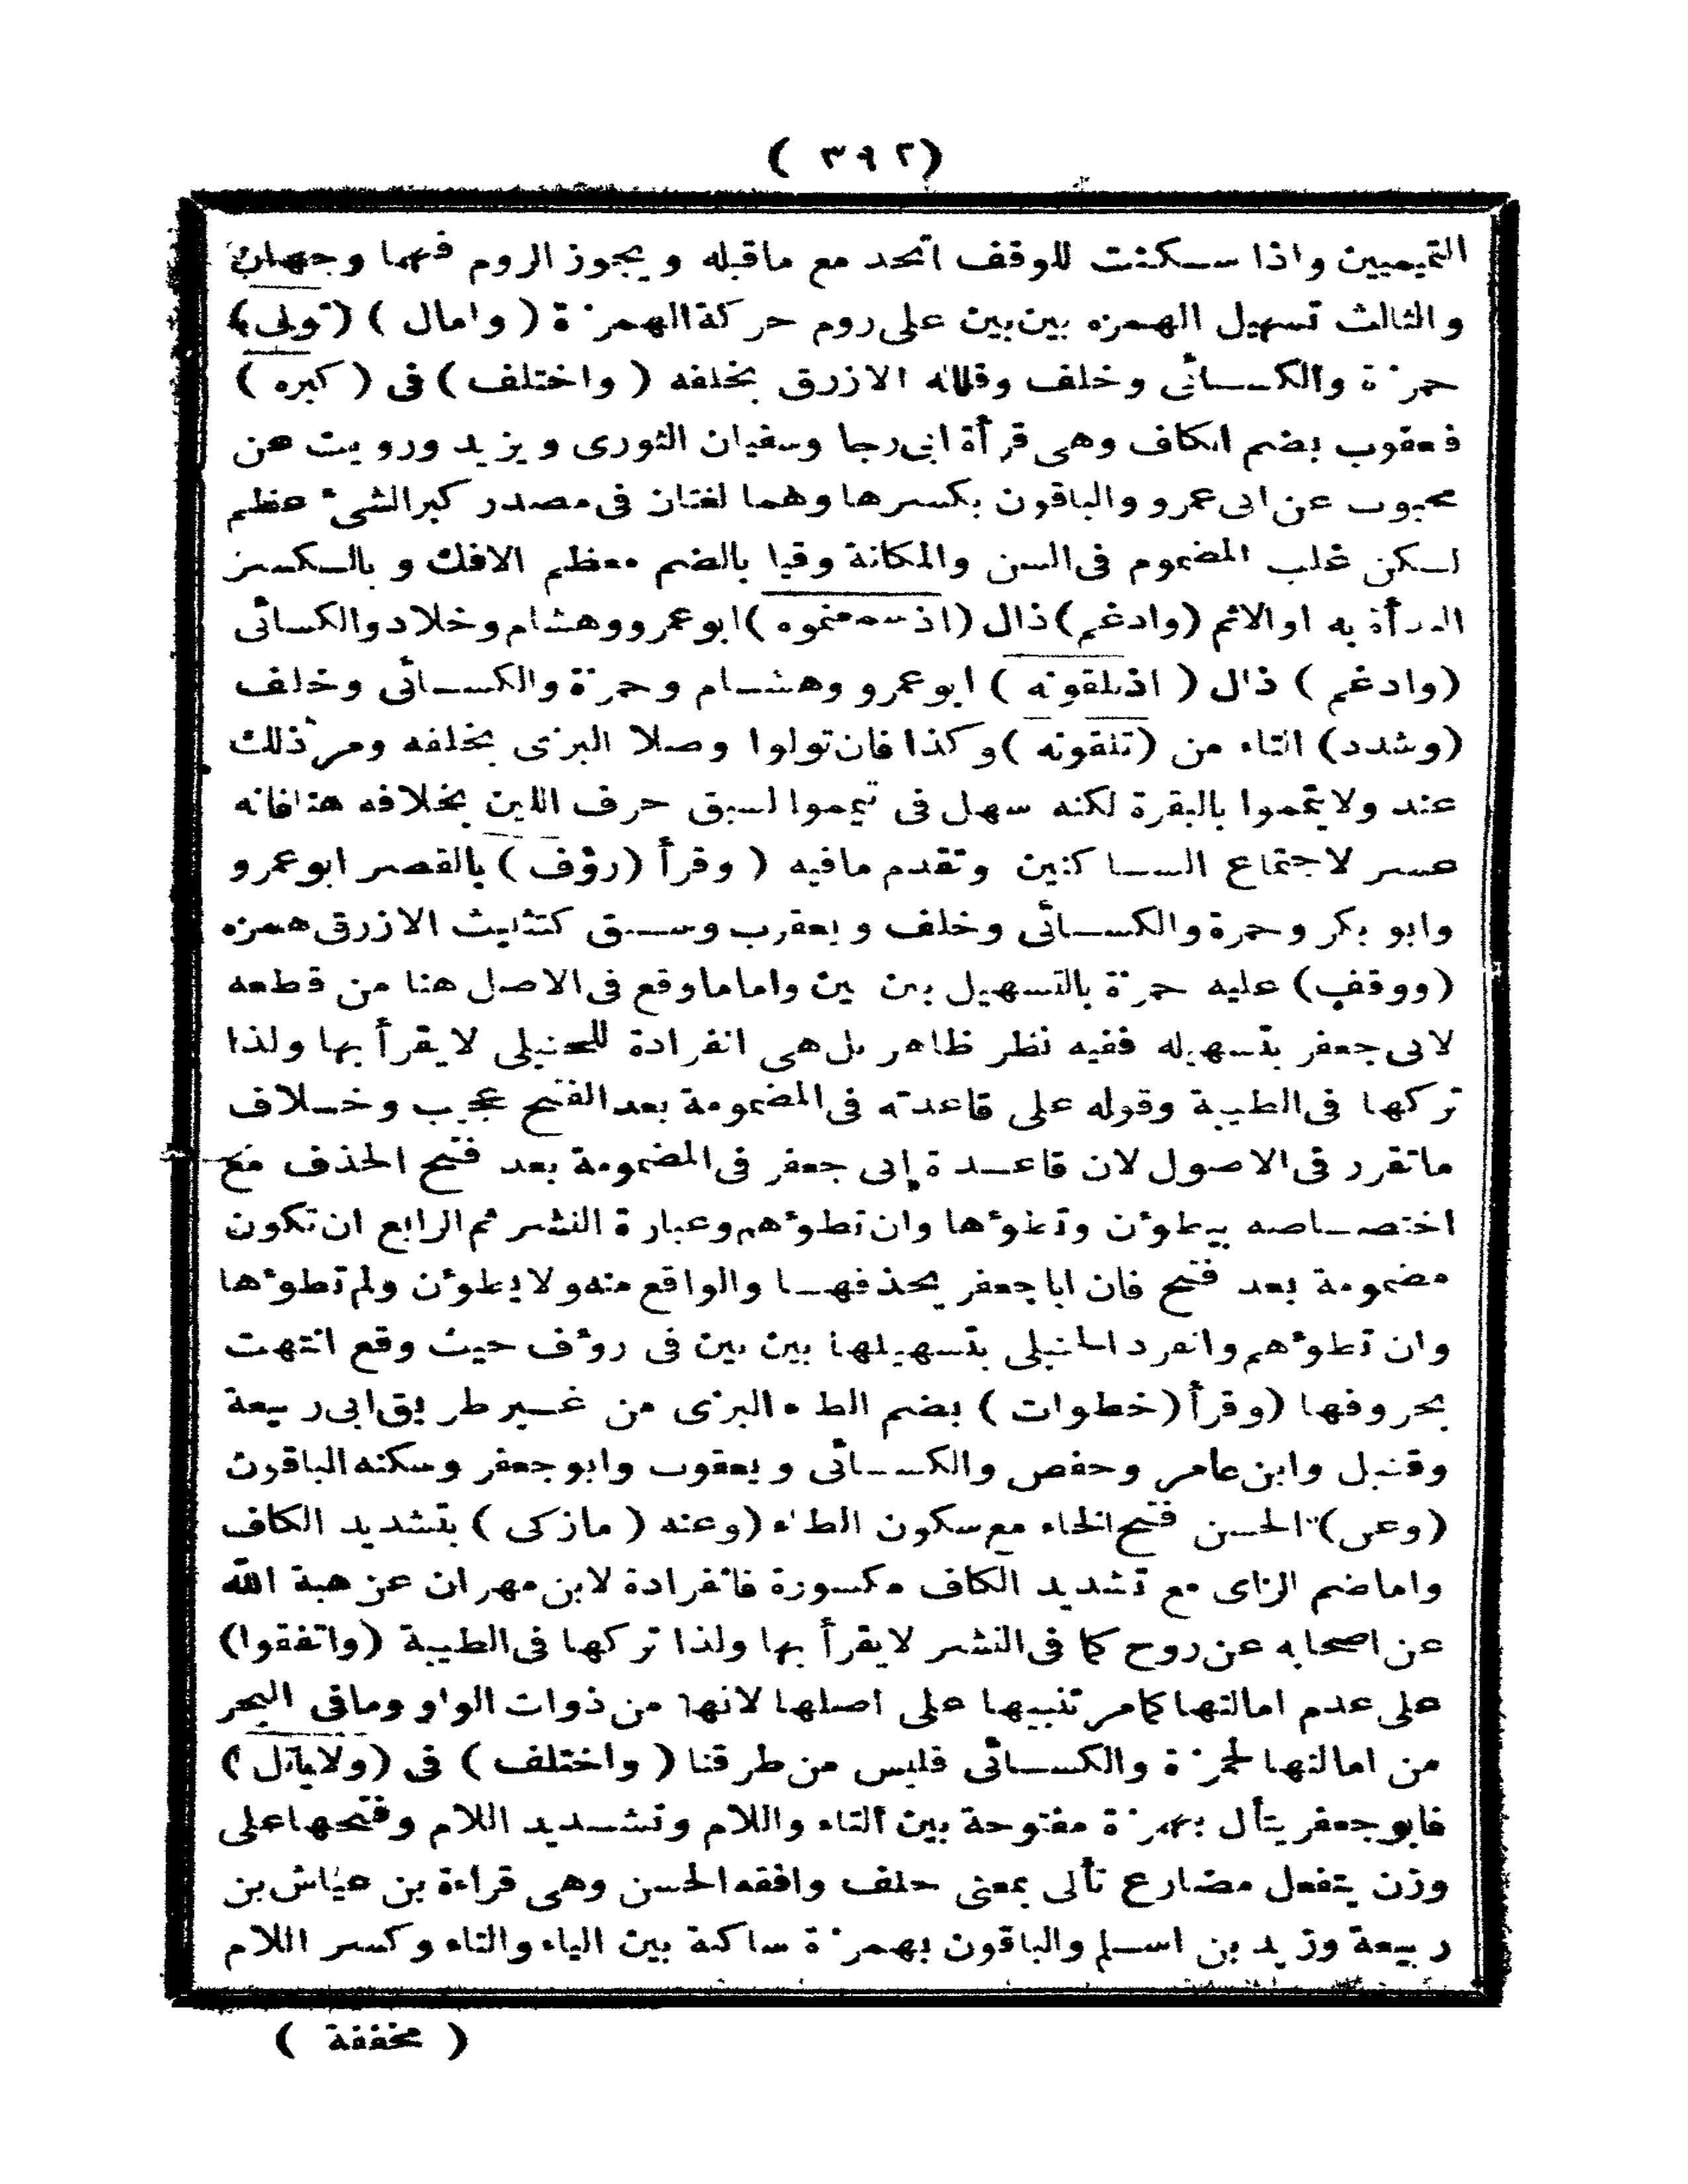 ( ٣٩٢ )
التميميين واذا سكنت للوقف اتحد مع ماقبله ويجوز الروم فهما وجهان
والثالث تسهيل الهمزه بين بين على روم حركة الهمزة ( وامال ) (تولى)
حمزة والكسائى وخلف وقلله الازرق بخلفه ( واختلف ) فى ( كبره )
فعقوب بضم الكاف وهى قرأة ابى رجا وسفيان الثورى ويزيد ورويت عن
محبوب عن ابى عمرو والباقون بكسرها وهما لغتان فى مصدر كبر الشىء عظم
لكن غلب المضموم فى السن والمكانة وقيا بالضم معظم الافك وبالكسر
البدأة به او الاثم (وادغم) ذال (اذ سمعتموه) ابو عمرو وهشام وخلاد والكسائى
(وادغم ) ذال ( اذتلقونه ) ابو عمرو وهشام وحمزة والكسائى وخلف
(وشدد) التاء من (تلقونه) وكذا فان تولوا وصلا البزى بخلفه ومر ذلك
عند ولا تيمموا بالبقرة لكنه سهل فى تيمموا لسبق حرف اللين بخلافه هنا فانه
عسر لاجتماع الساكنين وتقدم مافيه ( وقرأ (رؤف ) بالقصر ابو عمرو
وابو بكر وحمزة والكسائى وخلف ويعقوب وسبق كتثليث الازرق همزه
(ووقف) عليه حمزة بالتسهيل بين بين واماما وقع فى الاصل هنا من قطعه
لابى جعفر بتسهيله ففيه نظر ظاهر بل هى انفرادة للحنبلى لا يقرأ بها ولذا
تركها فى الطيبة وقوله على قاعدته فى المضمومة بعد الفتح عجيب وخلاف
ماتقرر فى الاصول لان قاعدة ابى جعفر فى المضمومة بعد فتح الحذف مع
اختصاصه بيطؤن وتطؤها وان تطؤهم وعبارة النشر ثم الرابع ان تكون
مضمومة بعد فتح فان ابا جعفر يحذفها والواقع منه ولا يطؤن ولم تطؤها
وان تطؤهم وانفرد الحنبلى بتسهيلها بين بين فى رؤف حيث وقع انتهت
بحروفها (وقرأ (خطوات ) بضم الطاء البزى من غير طريق ابى ربيعة
وقنبل وابن عامر وحفص والكسائى ويعقوب وابو جعفر وسكنه الباقون
(وعن) الحسن فتح الخاء مع سكون الطاء (وعنه ( مازكى ) بتشديد الكاف
واما ضم الزاى مع تشديد الكاف مكسورة فانفرادة لابن مهران عن هبة الله
عن اصحابه عن روح كما فى النشر لا يقرأ بها ولذا تركها فى الطيبة (واتفقوا)
على عدم امالتها كما مر تنبيها على اصلها لانها من ذوات الواو ومافى البحر
من امالتها لحمزة والكسائى فليس من طرقنا ( واختلف ) فى (ولا يأتل)
فابو جعفر يتأل بهمزة مفتوحة بين التاء واللام وتشديد اللام وفتحها على
وزن يتفعل مضارع تألى بمعنى حلف وافقه الحسن وهى قراءة بن عياش بن
ربيعة وزيد بن اسلم والباقون بهمزة ساكنة بين الياء والتاء وكسر اللام
( مخففة )